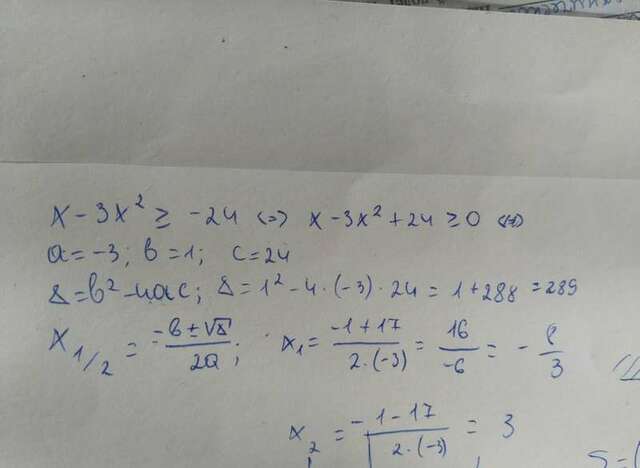 x - 3x² ≥ -24 <=> x - 3x² + 24 ≥ 0 <=>
a = -3; b = 1; c = 24
Δ = b² - 4ac; Δ = 1² - 4·(-3)·24 = 1 + 288 = 289
x1/2 = (-b ± √Δ)/2a; x1 = (-1 + 17)/(2·(-3)) = 16/-6 = -8/3
x2 = (-1 - 17)/(2·(-3)) = 3